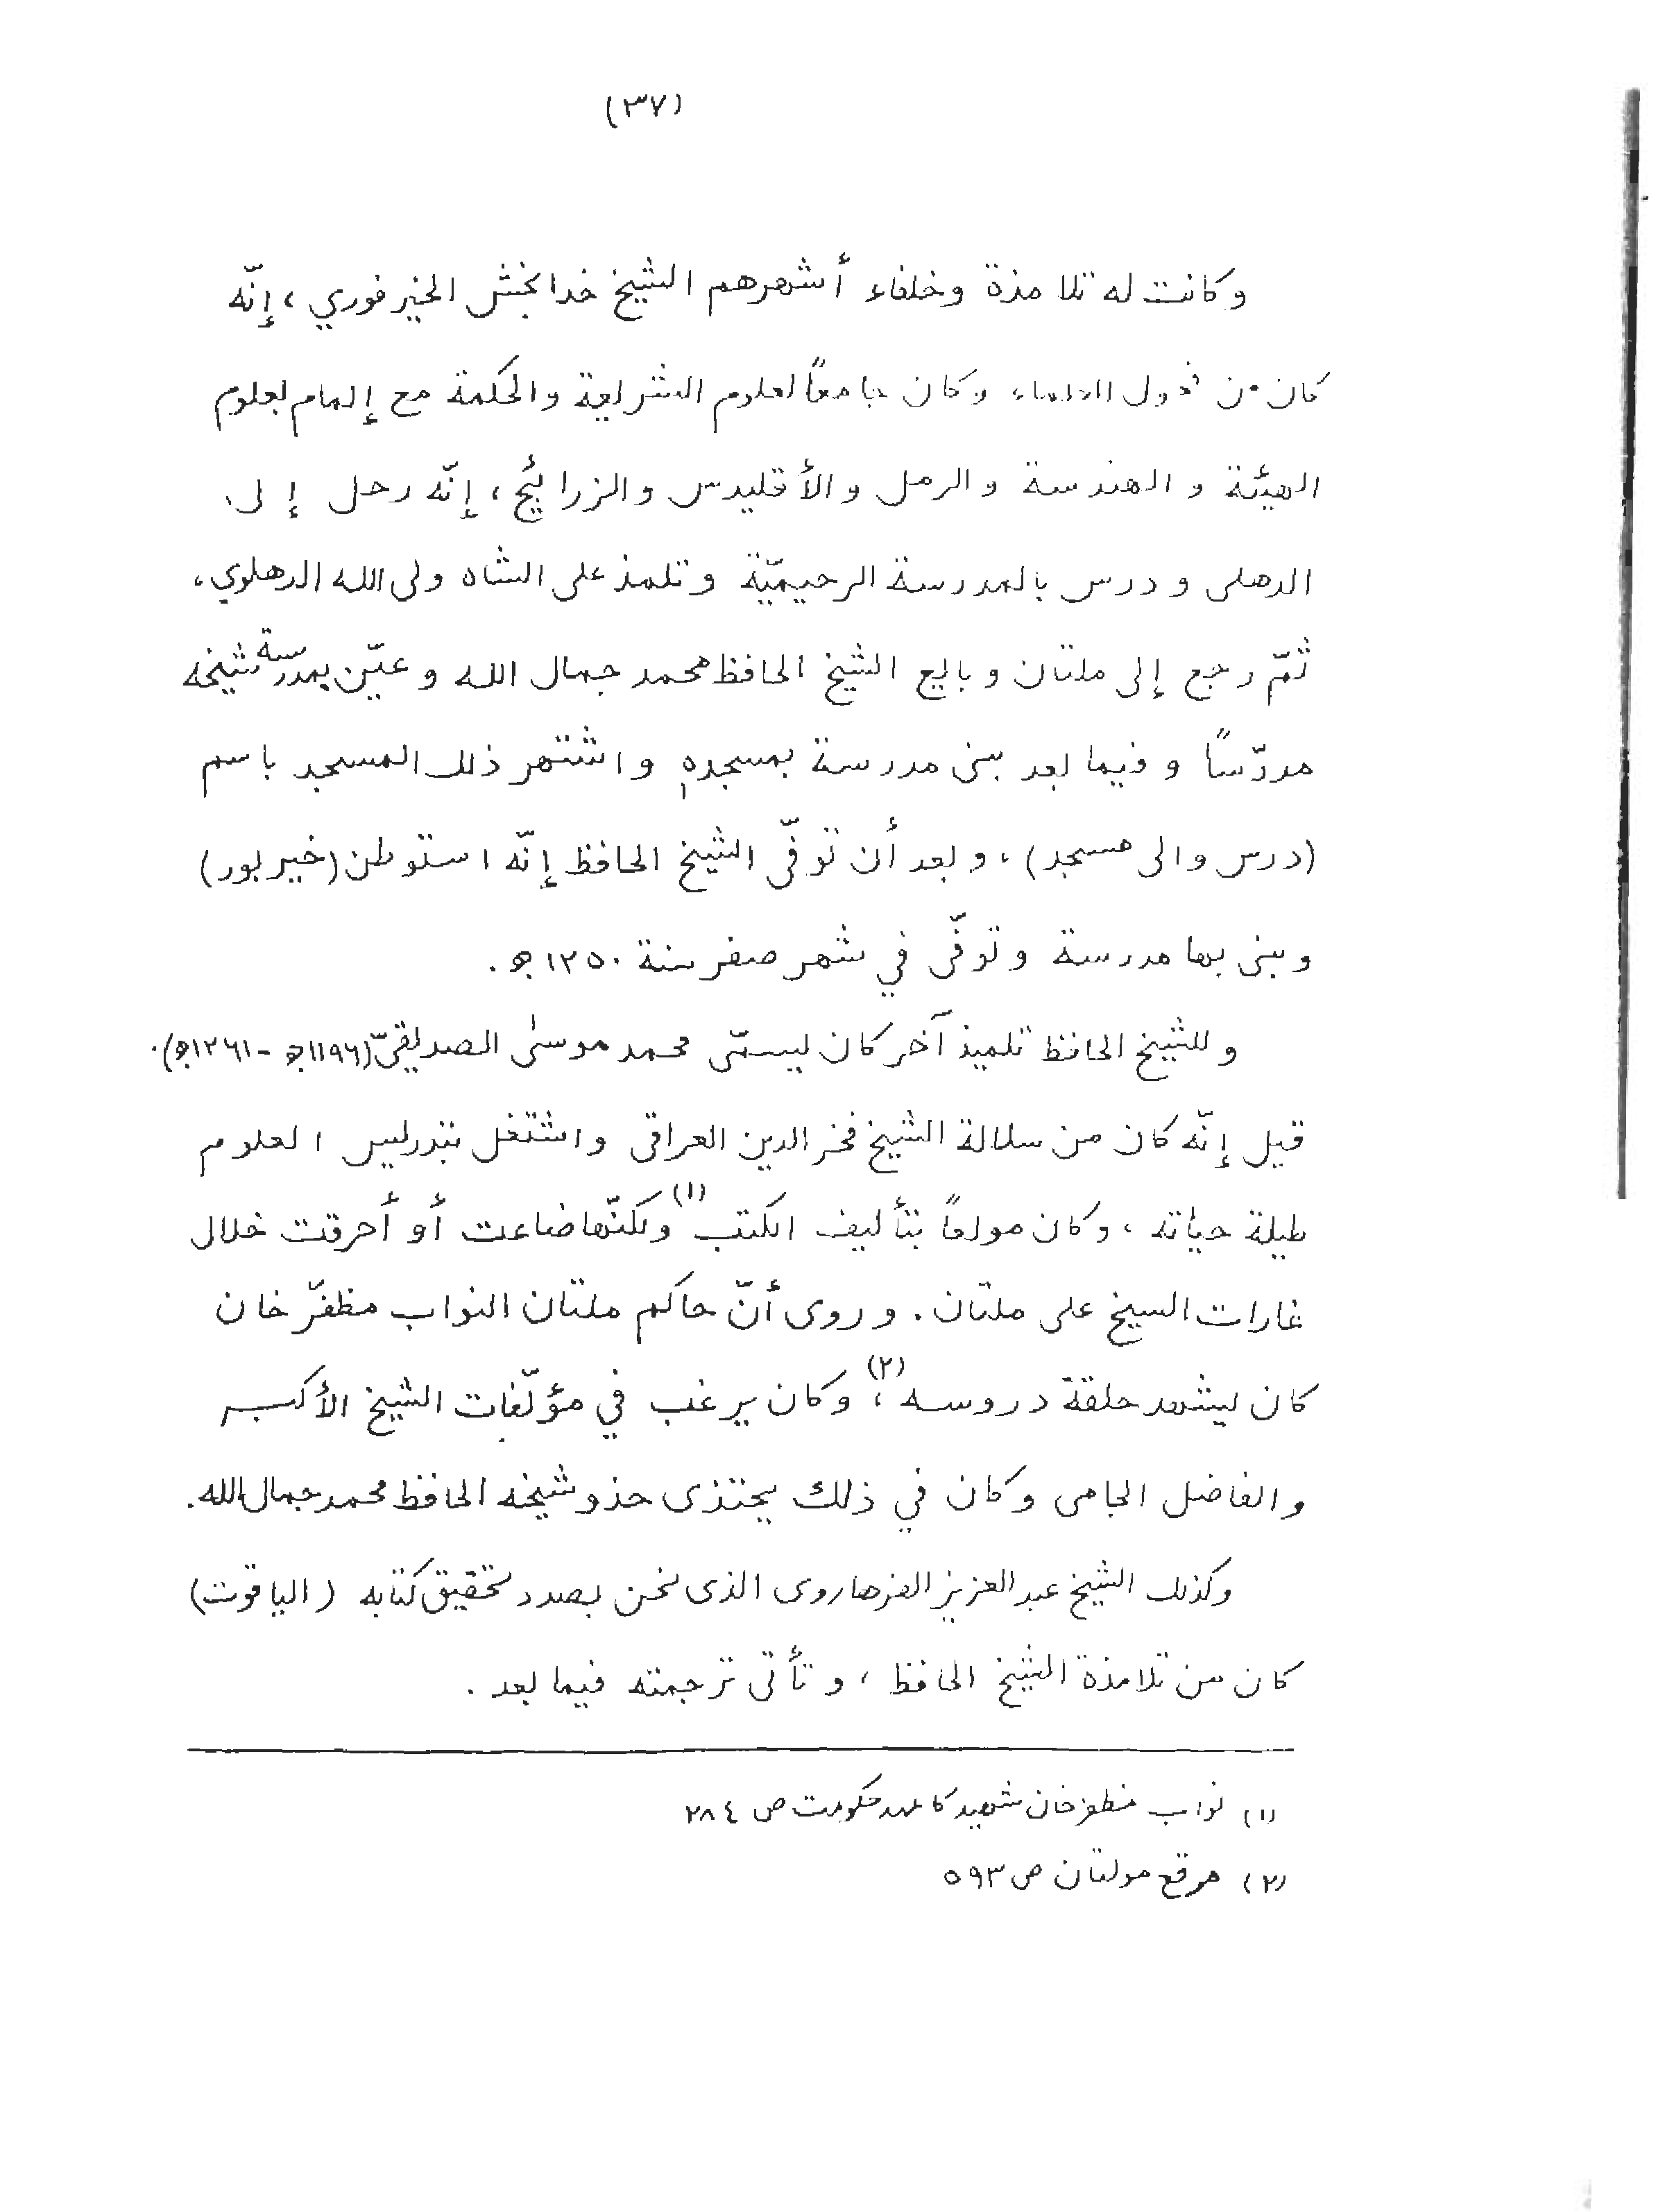 (٣٧)
وكانت له تلامذة وخلفاء أشهرهم الشيخ خدا بخش الخيرفوري ، إنّه
كان من فحول العلماء وكان جامعاً لعلوم الشريعة والحكمة مع إلمام بعلوم
الهيئة و الهندسة و الرمل و الأقليدس و الزرائج ، إنّه رحل إلى
الدهلى و درس بالمدرسة الرحيميّة و تلمذ على الشاه ولى الله الدهلوي ،
ثمّ رجع إلى ملتان و بايع الشيخ الحافظ محمد جمال الله و عيّن بمدرسة شيخه
مدرّساً و فيما بعد بنى مدرسة بمسجدهٖ و اشتهر ذلك المسجد باسم
(درس والى مسجد) ، و بعد أن توفّى الشيخ الحافظ إنّه استوطن (خيربور)
و بنى بها مدرسة و توفّى في شهر صفر سنة ١٢٥٠ ھ .
و للشيخ الحافظ تلميذ آخر كان يسمّى محمد موسىٰ الصديقىّ (١١٩٦ھ - ١٢٦١ھ) .
قيل إنّه كان من سلالة الشيخ فخر الدين العراقى و اشتغل بتدريس العلوم
طيلة حياته ، وكان مولعاً بتأليف الكتب (١) ولكنّها ضاعت أو أُحرقت خلال
غارات السيخ على ملتان . و روى أنّ حاكم ملتان النواب مظفّر خان
كان يشهد حلقة دروسه (٢) ، وكان يرغب في مؤلّفات الشيخ الأكبر
و الفاضل الجامى وكان في ذلك يحتذى حذو شيخه الحافظ محمد جمال الله .
وكذلك الشيخ عبد العزيز الفرهاروى الذى نحن بصدد تحقيق كتابه ( الياقوت )
كان من تلامذة الشيخ الحافظ ، و تأتى ترجمته فيما بعد .
(١) نواب مظفر خان شهيد كا عهد حكومت ص ٢٨٤
(٢) مرقع مولتان ص ٥٩٣